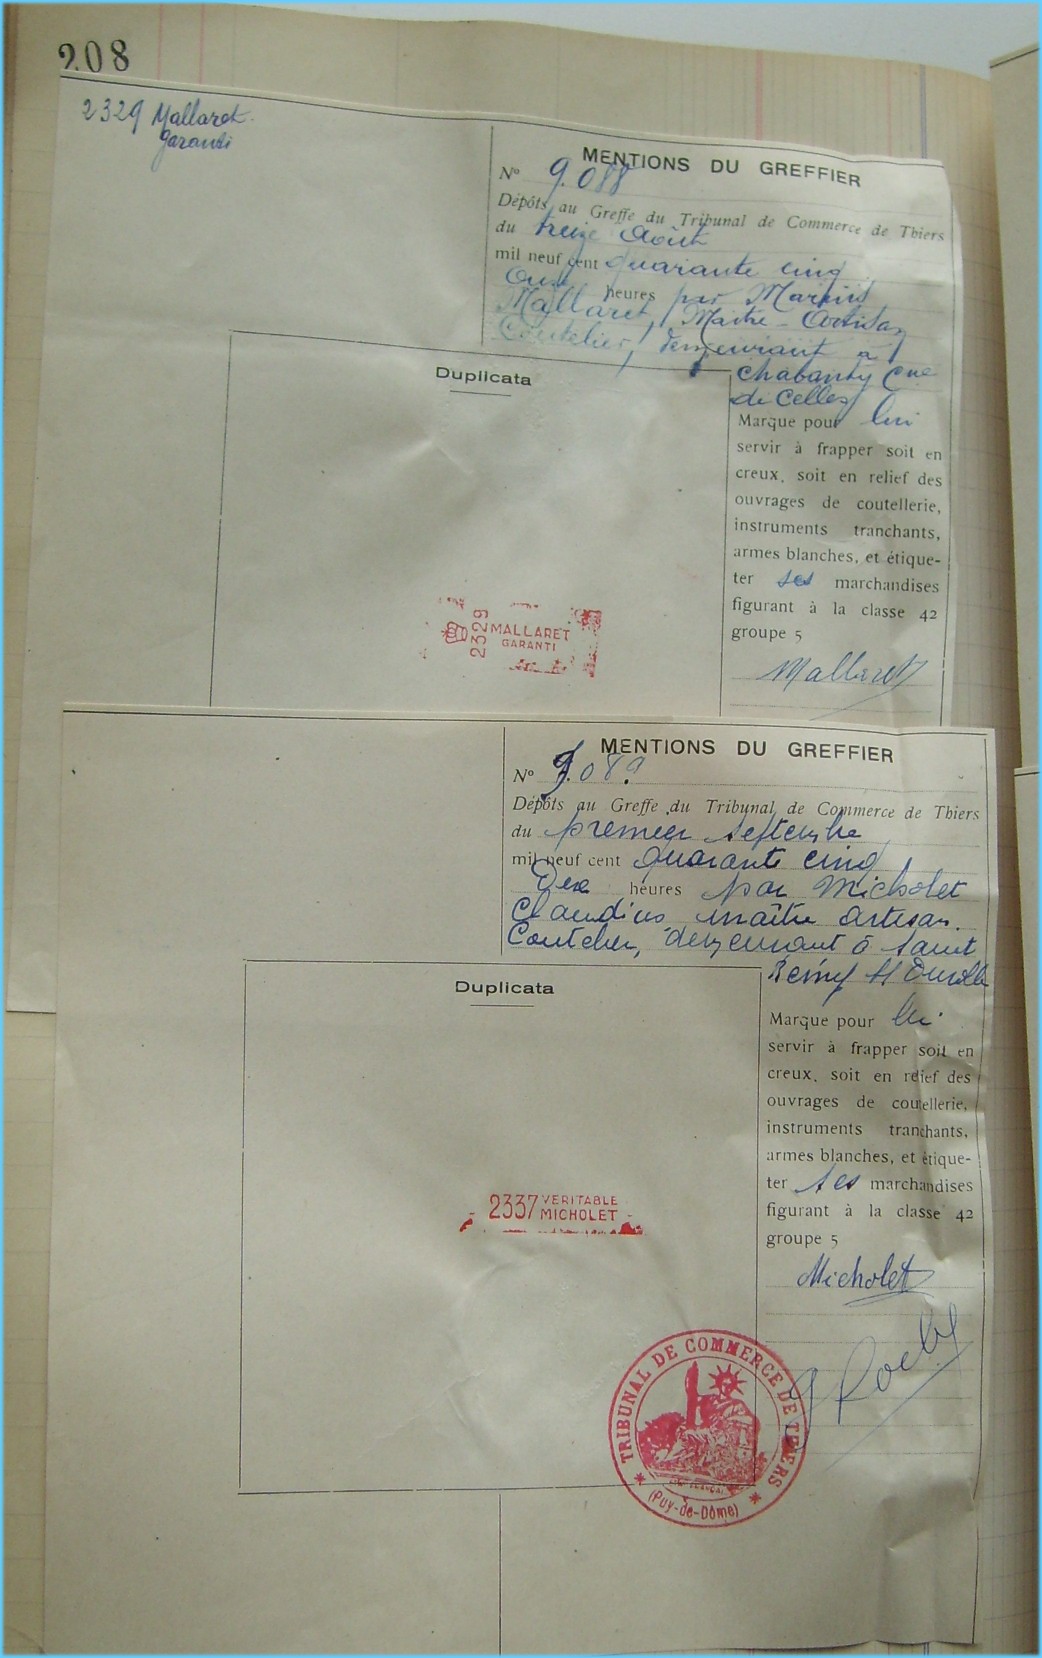 208
2329 Mallaret
garanti
MENTIONS DU GREFFIER
N° 9.088
Dépôts au Greffe du Tribunal de Commerce de Thiers
du treize Août
mil neuf cent quarante cinq
Onze heures par Marius
Mallaret, Maître-Artisan
Coutelier, demeurant à
Chabanty Cne
de Celles
Duplicata
Marque pour lui
servir à frapper soit en
creux, soit en relief des
ouvrages de coutellerie,
instruments tranchants,
armes blanches, et étique-
ter ses marchandises
figurant à la classe 42
groupe 5
2329 MALLARET
GARANTI
Mallaret
MENTIONS DU GREFFIER
N° 9.089
Dépôts au Greffe du Tribunal de Commerce de Thiers
du premier septembre
mil neuf cent quarante cinq
heures par Micholet
Claudius maître artisan
Coutelier, demeurant à Saint
Rémy s/ Durolle
Duplicata
Marque pour lui
servir à frapper soit en
creux, soit en relief des
ouvrages de coutellerie,
instruments tranchants,
armes blanches, et étique-
ter ses marchandises
figurant à la classe 42
groupe 5
2337 VERITABLE
MICHOLET
Micholet
TRIBUNAL DE COMMERCE DE THIERS
(Puy-de-Dôme)